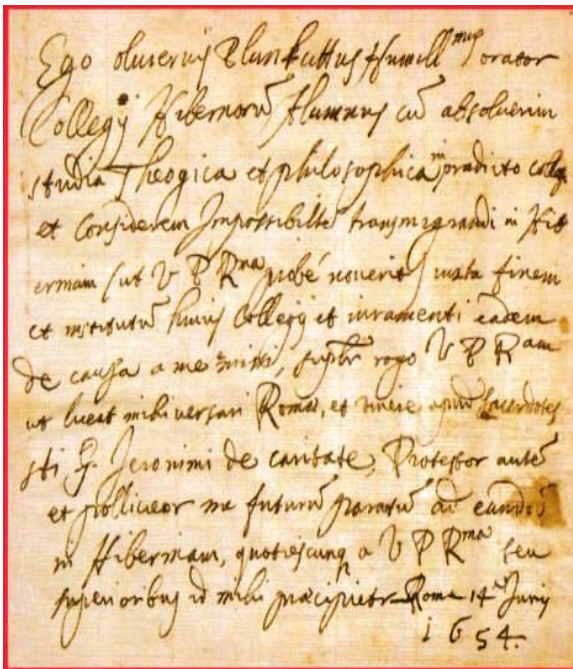 Ego oliuerius Plunkettus Humill mus orator
Collegij Hibernorū Alumnus cū absoluerim
studia Theogica et philosophica in predicto collo
et considerem Impossibilitē transmigrandi in Hib
erniam (ut V P Rma probé nouerit) iuxta finem
et institutū huius Collegij et iuramenti eadem
de causa a me supltr rogo V P Ram
ut liceat mihi versari Romæ, et viuere apud sacerdotes
Sti Jeronimi de caritate, Protestor autē
et polliceor me futurū paratū ad eundū
in Hiberniam, quotiescunq a V P Rma seu
superioribus id mihi præcipietr Roma 14 Junij
1654.